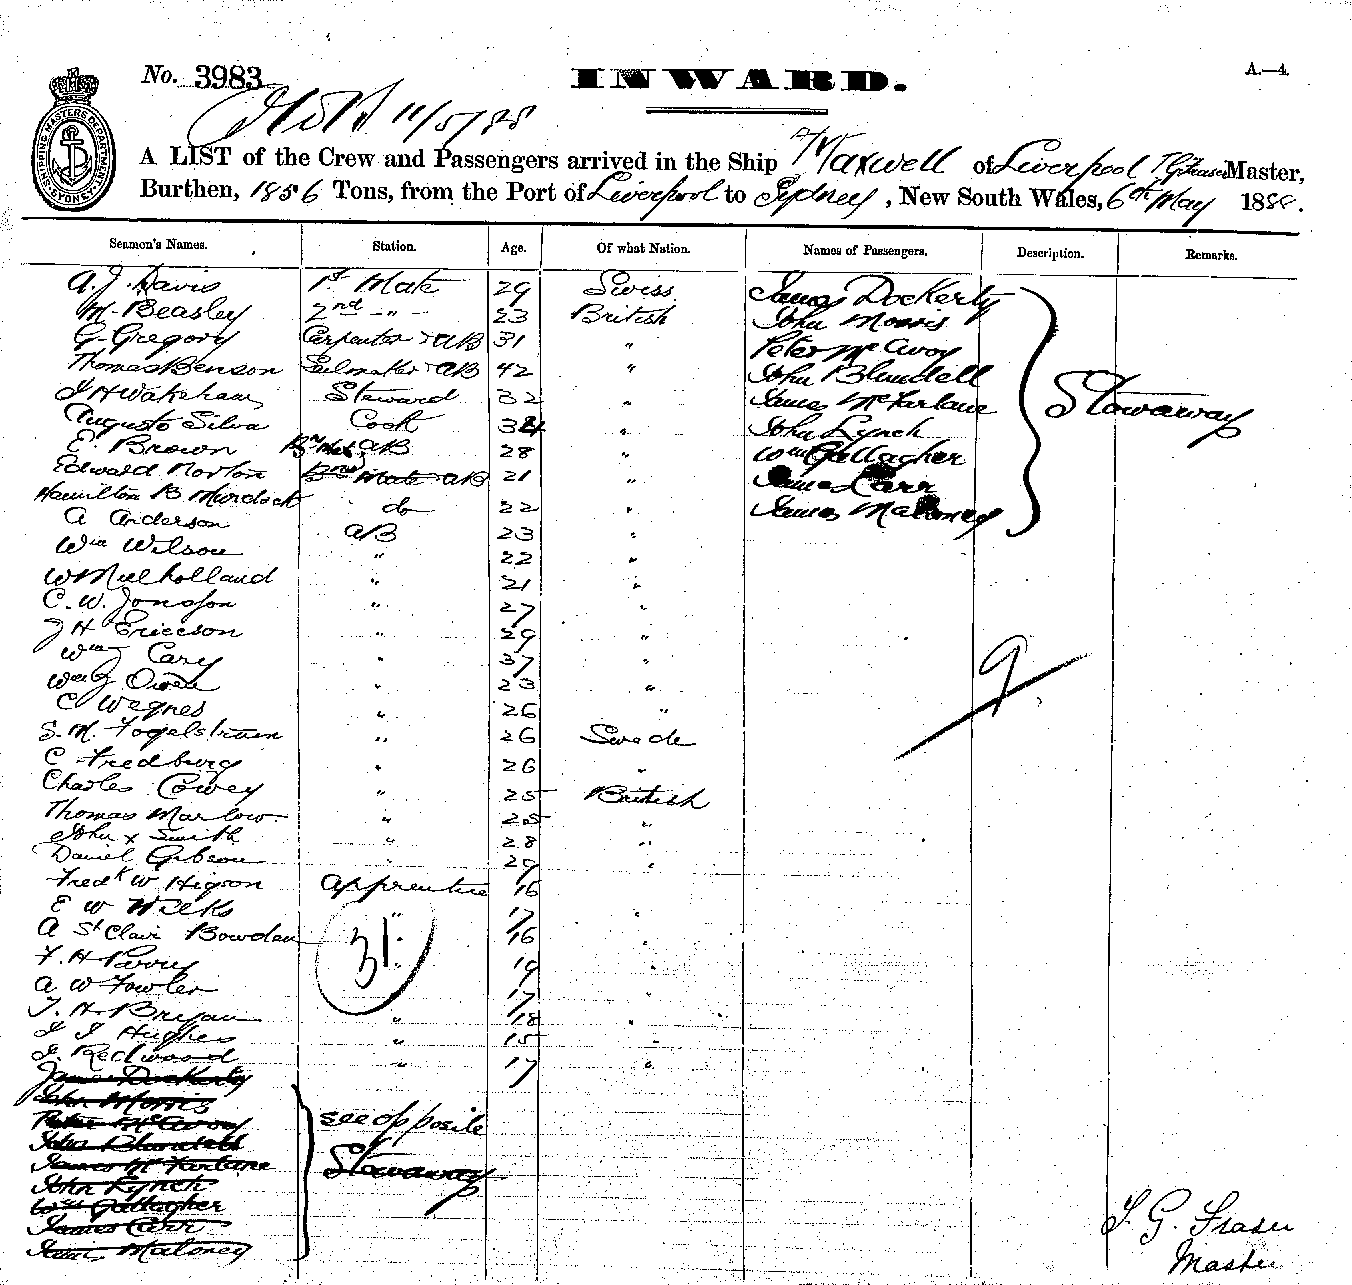 No. 3983
INWARD.
A.—4.
11/5/88
SHIPPING MASTERS DEPARTMENT SYDNEY
A LIST of the Crew and Passengers arrived in the Ship Maxwell of Liverpool T G Fraser Master,
Burthen, 1856 Tons, from the Port of Liverpool to Sydney, New South Wales, 6th May 1888.
Seamen's Names. Station. Age. Of what Nation. Names of Passengers. Description. Remarks.
A. J. Davis 1st Mate 29 Swiss James Dockerty
M. Beasley 2nd -"- 23 British John Morris
G. Gregory Carpenter & AB 31 " Peter McAvoy
Thomas Benson Sailmaker & AB 42 " John Blundell
J H Wakeham Steward 32 " James McFarlane
Stowaway
Augusto Silva Cook 34 " John Lynch
E. Brown Bn Mate AB 28 " Wm Gallagher
Edward Norton Bn Mate AB 21 " James Carr
Hamilton B Murdock do 22 " James Maloney
A Anderson AB 23 "
Wm Wilson " 22 "
W Mulholland " 21 "
C. W. Jonsson " 27 "
J H Ericson " 29 "
Wm J Cary " 37 "
Wm J Owen " 23 "
9
C Wegnes " 26 "
S. M. Fogelstrum " 26 Swede
C Fredburg " 26 "
Charles Cowey " 25 British
Thomas Marlow " 25 "
John x Smith " 28 "
Daniel Gibson " 29 "
Fredk W Higson Apprentice 16
E W Wilks " 17 "
A St Clair Bowden 16 "
31
F. H. Parry 19 "
A W Fowler 17 "
T. H. Bryan " 18 "
J J Hughes " 15 "
J. Redwood " 17 "
James Dockerty
John Morris
Peter McAvoy see opposite
John Blundell
James McFarlane Stowaway
John Lynch
Wm Gallagher
James Carr
James Maloney
T. G. Fraser
Master